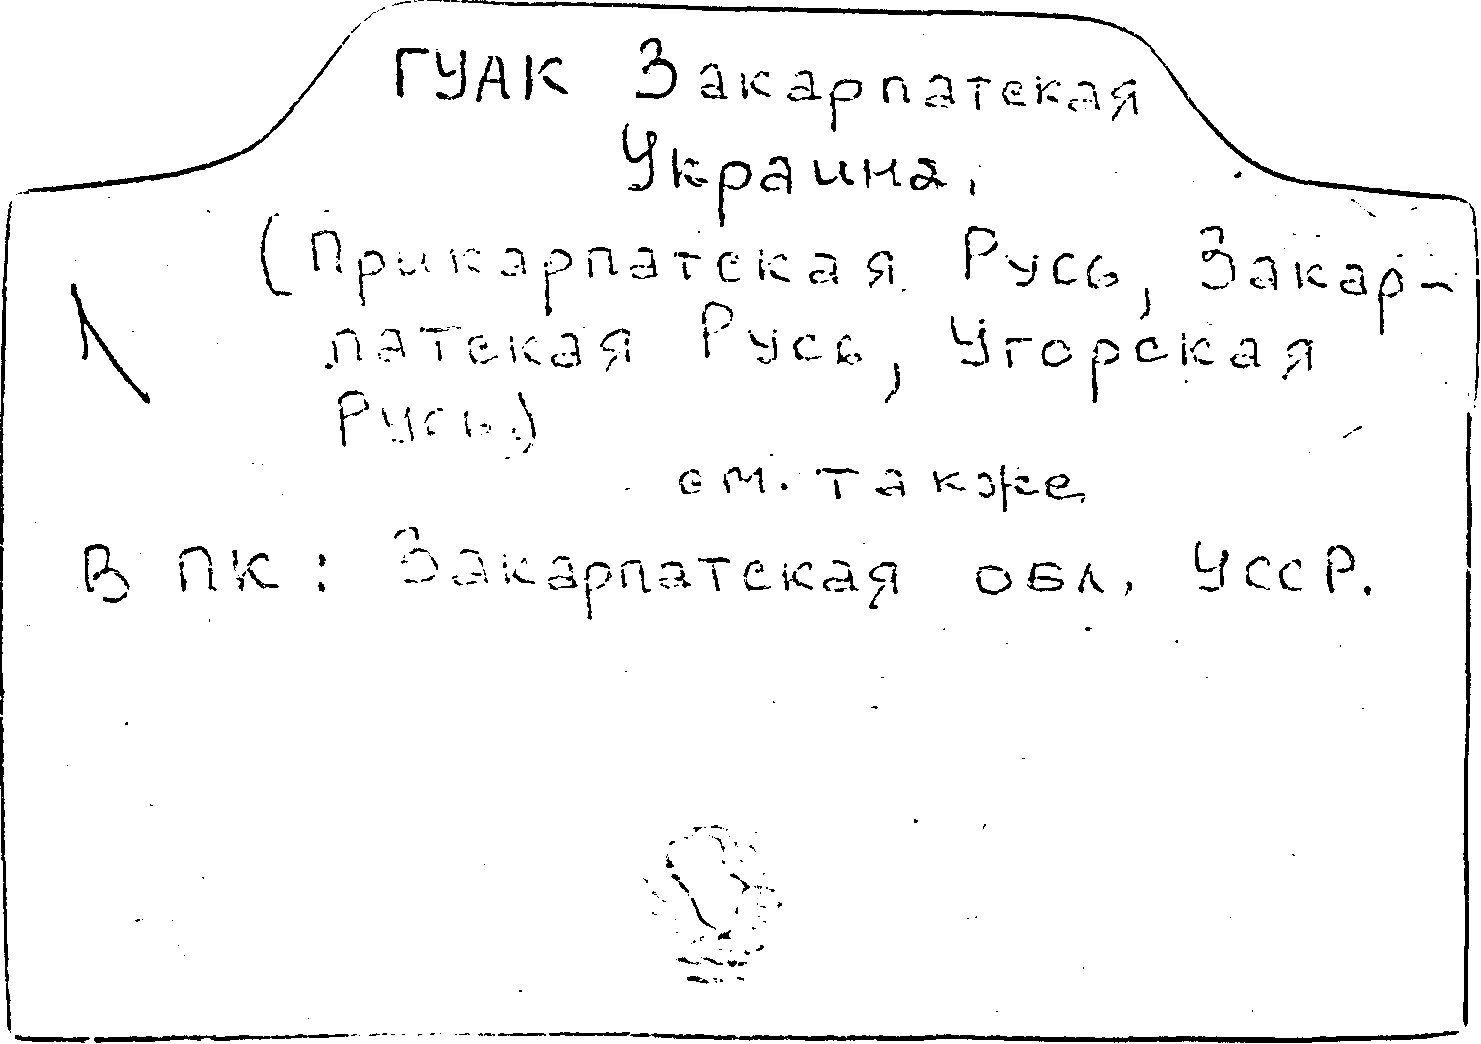 ГУАК Закарпатская
Украина.
(Прикарпатская Русь, Закар-
патская Русь, Угорская
Русь)
см. также
В ПК: Закарпатская обл. УССР.